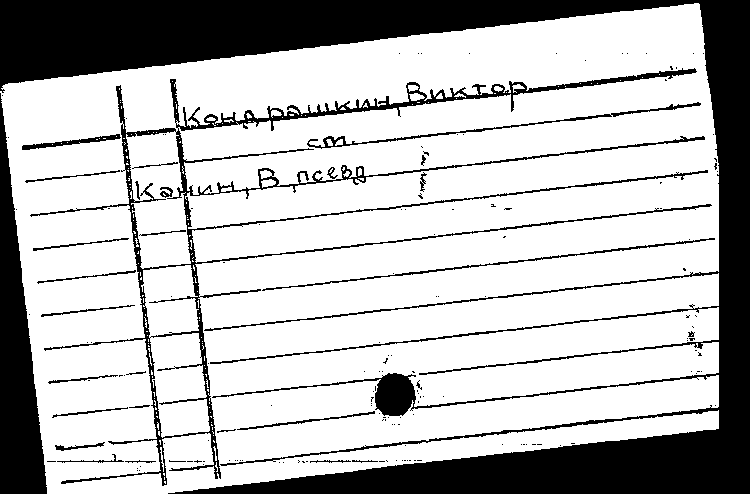 Кондрашкин, Виктор
ст.
Канин, В псевд